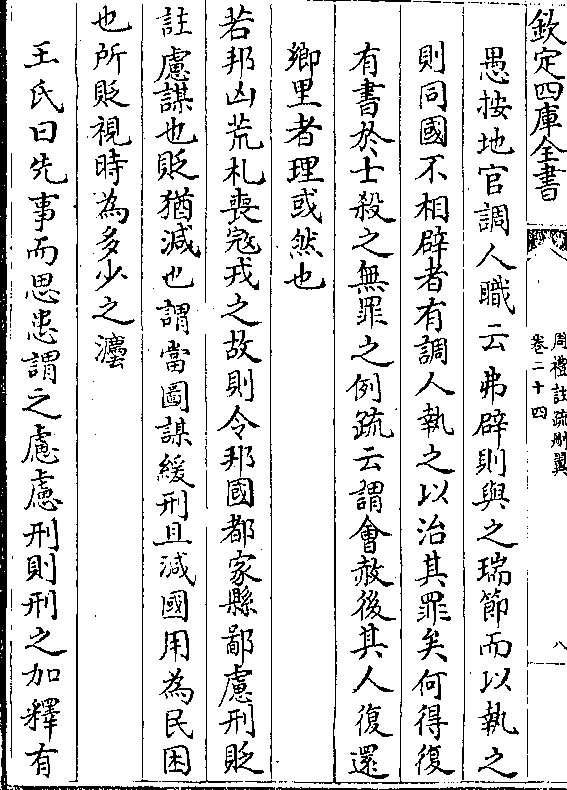 欽定四庫全書
周禮註疏刪翼
卷二十四
八
愚按地官調人職云弗辟則與之瑞節而以執之
則同國不相辟者有調人執之以治其罪矣何得復
有書於士殺之無罪之例疏云謂會赦後其人復還
鄉里者理或然也
若邦凶荒札喪寇戎之故則令邦國都家縣鄙慮刑貶
註慮謀也貶猶減也謂當圖謀緩刑且減國用為民困
也所貶視時為多少之灋
王氏曰先事而思患謂之慮慮刑則刑之加釋有